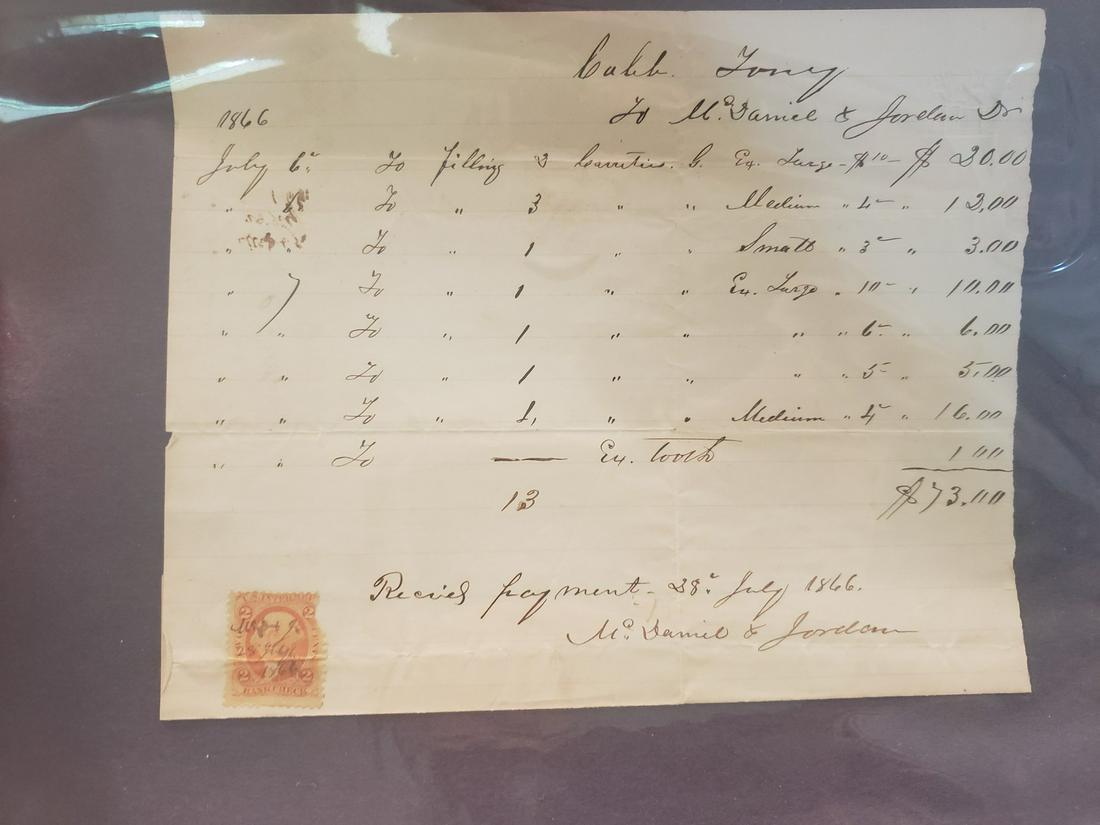 Caleb. Toney
1866 To Mc.Daniel & Jordan Dr
July 6" To filling 2 Cavities. G. Ex. Large - $10 - $ 20.00
" " To " 3 " " Medium " 4 - " 12.00
" " To " 1 " " Small " 3 - " 3.00
" 7 To " 1 " " Ex. Large " 10 - " 10.00
" " To " 1 " " " " 6 - " 6.00
" " To " 1 " " " " 5 - " 5.00
" " To " 4, " " Medium " 4 - " 16.00
" " To — Ex. tooth 1 00
13 $73.00
Recieved payment - 28" July 1866.
Mc. Daniel & Jordan
2 2
28 July
1866
2 2
BANK CHECK